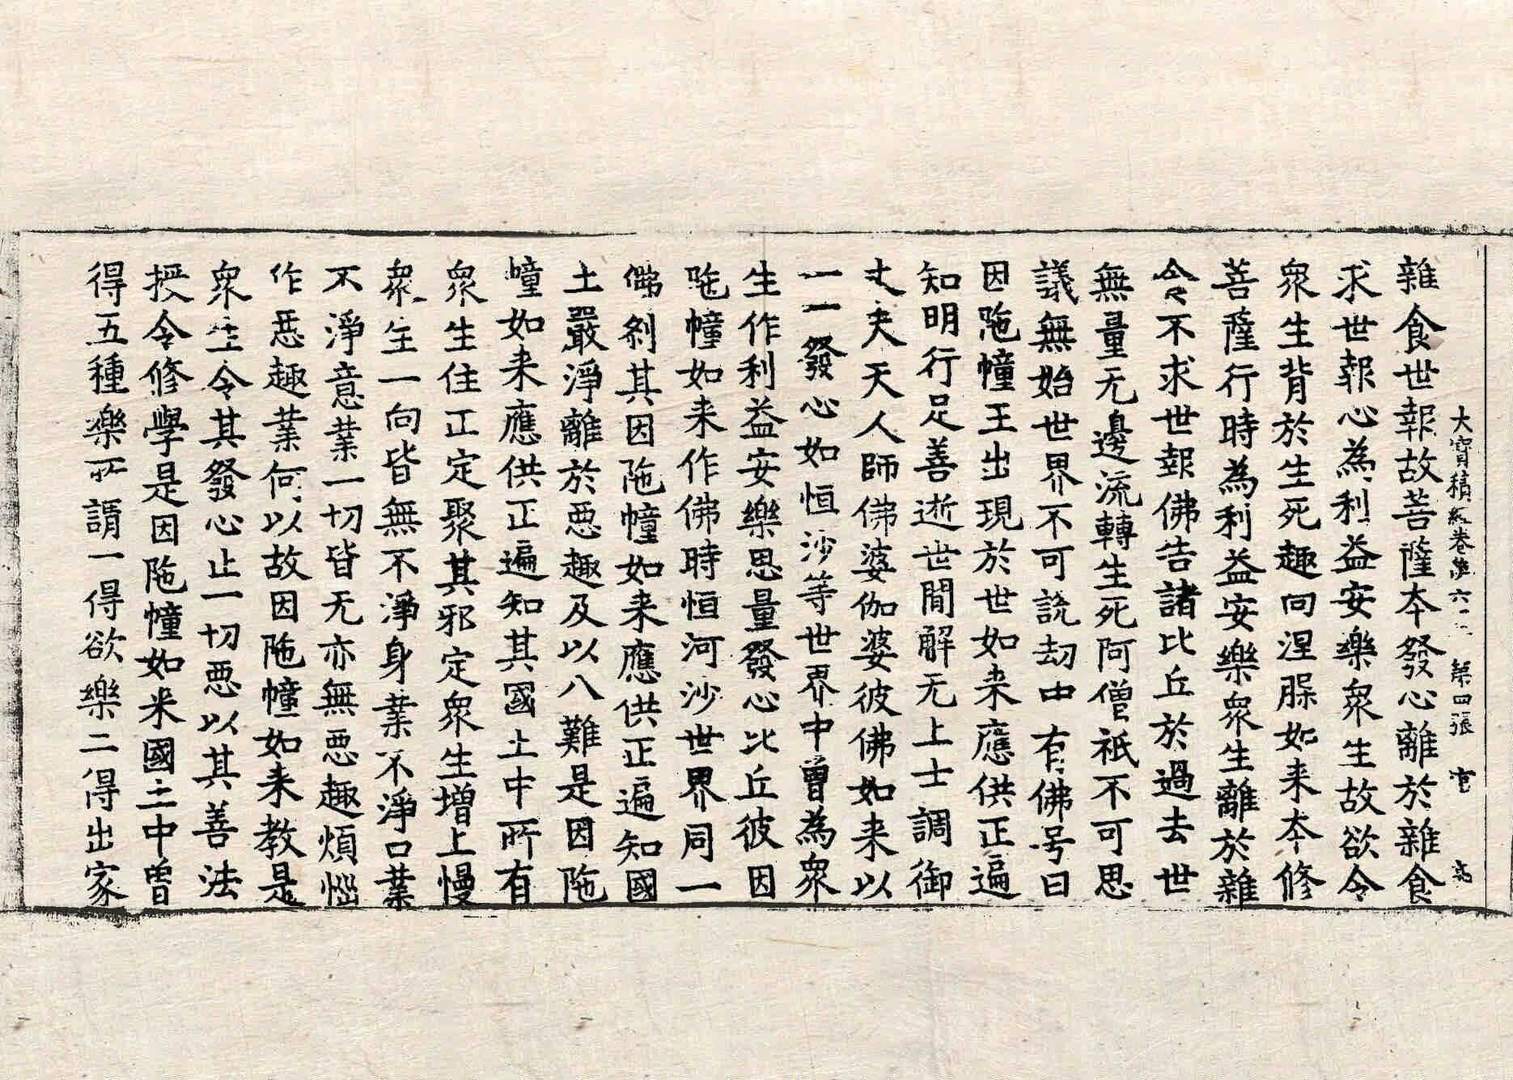 大寶積經卷第六十二 第四張 亮
雜食世報故菩薩夲發心離於雜食
求世報心為利益安樂衆生故欲令
衆生背於生死趣向涅槃如来夲修
菩薩行時為利益安樂衆生離於雜
令不求世報佛告諸比丘於過去世
無量无邊流轉生死阿僧祇不可思
議無始世界不可說劫中有佛号曰
因陁幢王出現於世如来應供正遍
知明行足善逝世間解无上士調御
丈夫天人師佛婆伽婆彼佛如来以
一一發心如恒沙等世界中曾為衆
生作利益安樂思量發心比丘彼因
陁幢如来作佛時恒河沙世界同一
佛刹其因陁幢如来應供正遍知國
土嚴淨離於惡趣及以八難是因陁
幢如来應供正遍知其國土中所有
衆生住正定聚其邪定衆生增上慢
衆生一向皆無不淨身業不淨口業
不淨意業一切皆无亦無惡趣煩惱
作惡趣業何以故因陁幢如来教是
衆生令其發心止一切惡以其善法
授令修學是因陁幢如来國土中曾
得五種樂所謂一得欲樂二得出家